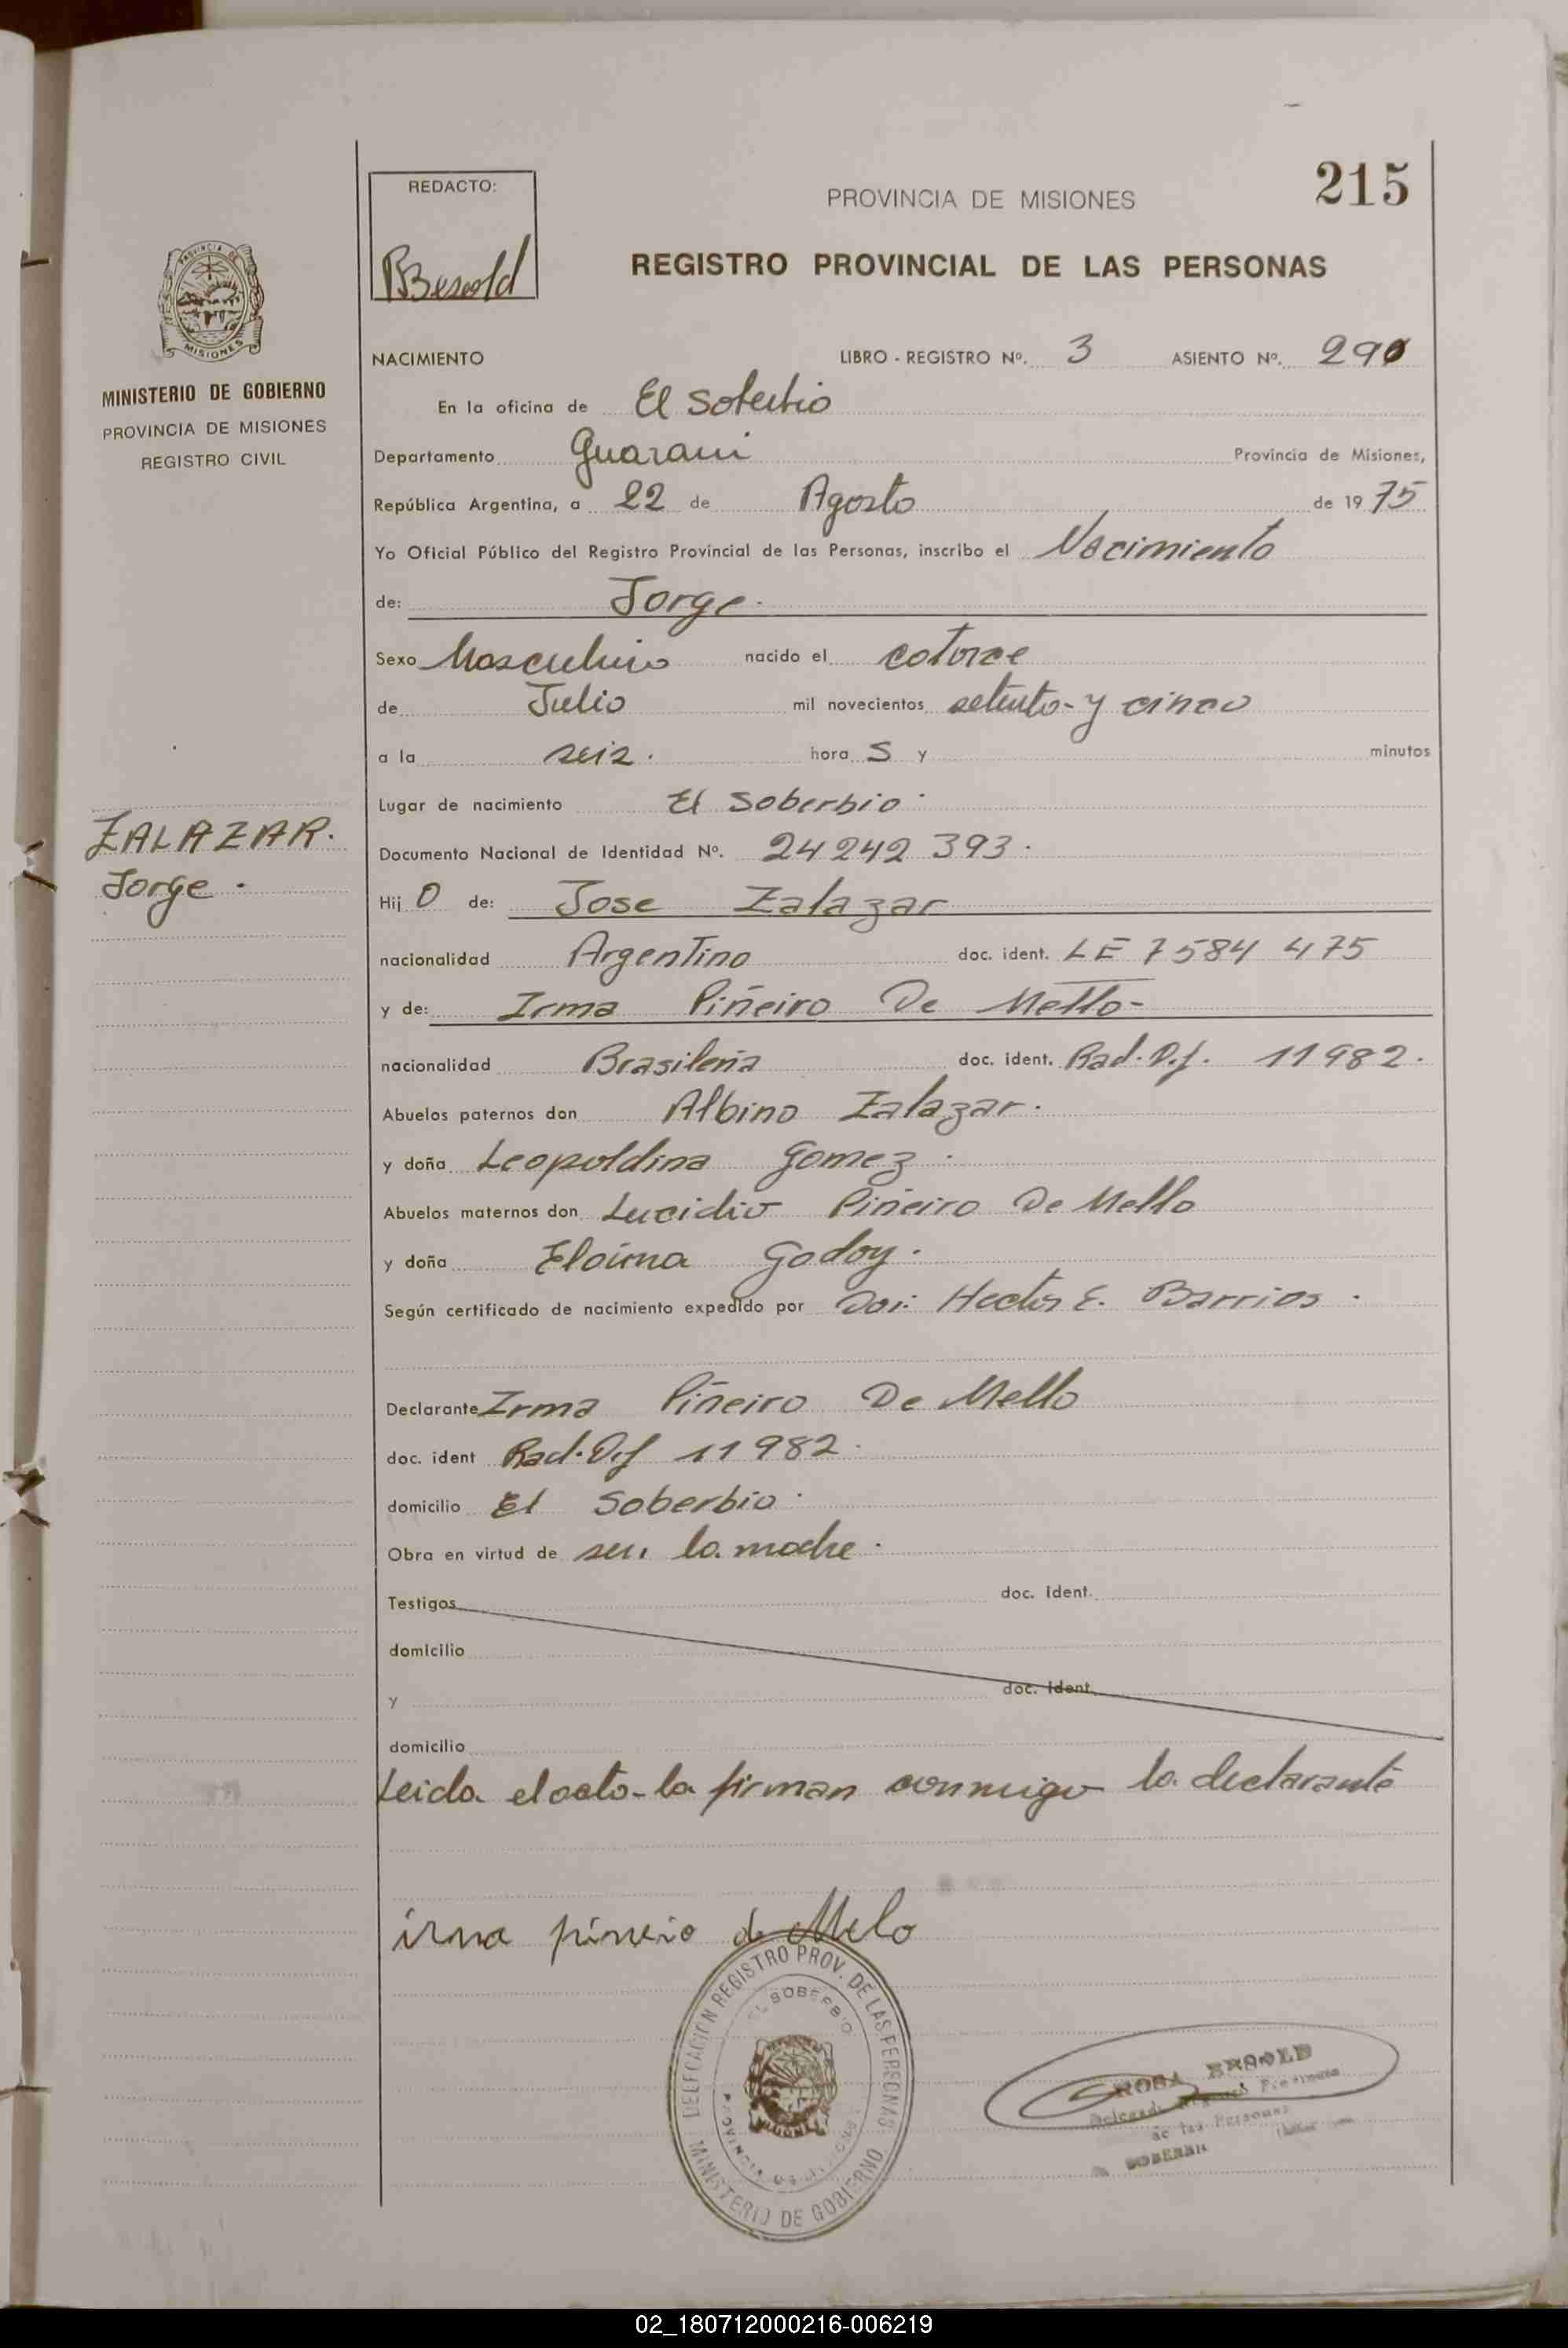 215
REDACTO:
PROVINCIA DE MISIONES
REGISTRO PROVINCIAL DE LAS PERSONAS
PROVINCIA DE
MISIONES
MINISTERIO DE GOBIERNO
PROVINCIA DE MISIONES
REGISTRO CIVIL
NACIMIENTO LIBRO - REGISTRO Nº. 3 ASIENTO Nº. 290
En la oficina de El Soberbio
Departamento Guarani Provincia de Misiones,
República Argentina, a 22 de Agosto de 1975
Yo Oficial Público del Registro Provincial de las Personas, inscribo el Nacimiento
de: Jorge.
Sexo Masculino nacido el catorce
de Julio mil novecientos setenta y cinco
a la seis. hora s y minutos
Lugar de nacimiento El Soberbio.
ZALAZAR.
Jorge.
Documento Nacional de Identidad Nº. 24242393.
Hijo de: Jose Zalazar
nacionalidad Argentino doc. ident. LE 7584475
y de: Irma Piñeiro De Mello-
nacionalidad Brasileña doc. ident. Rad. Def. 11982.
Abuelos paternos don Albino Zalazar.
y doña Leopoldina Gomez.
Abuelos maternos don Lucidio Piñeiro De Mello
y doña Godoy.
Según certificado de nacimiento expedido por Hector E. Barrios.
Declarante Irma Piñeiro De Mello
doc. ident Rad. Def 11982.
domicilio El Soberbio.
Obra en virtud de ser la madre.
Testigos doc. ident.
domicilio
y doc. ident.
domicilio
Leida el acta la firman conmigo la declarante
irma piñeiro de Melo
DELEGACION REGISTRO PROV. DE LAS PERSONAS
EL SOBERBIO
PROVINCIA DE MISIONES
MINISTERIO DE GOBIERNO
ROSA
de las Personas
02_180712000216-006219